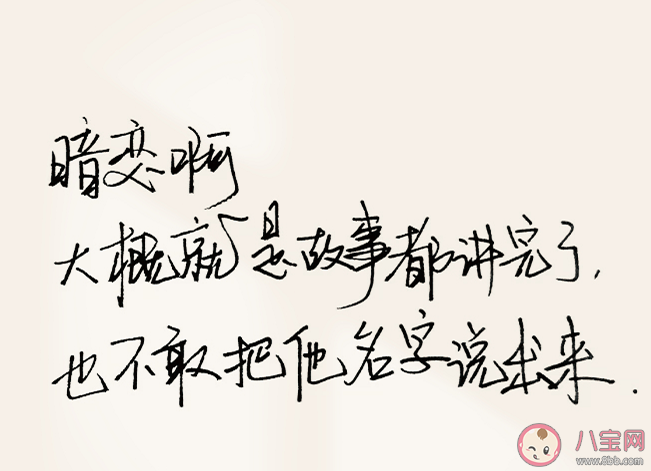 暗恋啊
大概就是故事都讲完了,
也不敢把他名字说出来.
八宝网
www.8bb.com